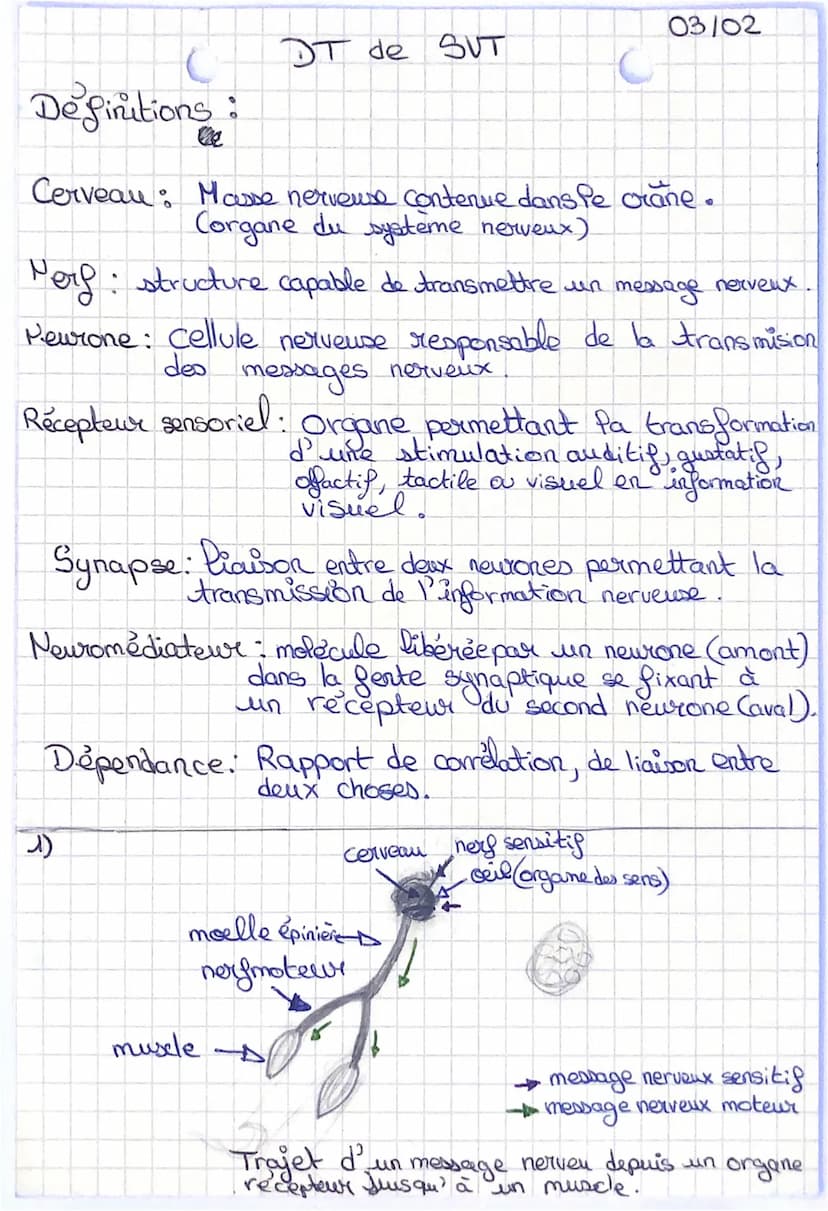 03/02
DT de SVT
Définitions :
Cerveau : Masse nerveuse contenue dans le crâne.
(organe du système nerveux)
Nerf : structure capable de transmettre un message nerveux.
Neurone : cellule nerveuse responsable de la transmision
des messages nerveux.
Récepteur sensoriel : Organe permettant la transformation
d'une stimulation auditif, gustatif,
olfactif, tactile ou visuel en information
visuel.
Synapse : liaison entre deux neurones permettant la
transmission de l'information nerveuse.
Neuromédiateur : molécule libérée par un neurone (amont)
dans la fente synaptique se fixant à
un récepteur du second neurone (aval).
Dépendance : Rapport de corrélation, de liaison entre
deux choses.
1)
cerveau
nerf sensitif
œil (organe des sens)
moelle épinière
nerf moteur
muscle
message nerveux sensitif
message nerveux moteur
Trajet d'un message nerveu depuis un organe
récepteur jusqu'à un muscle.